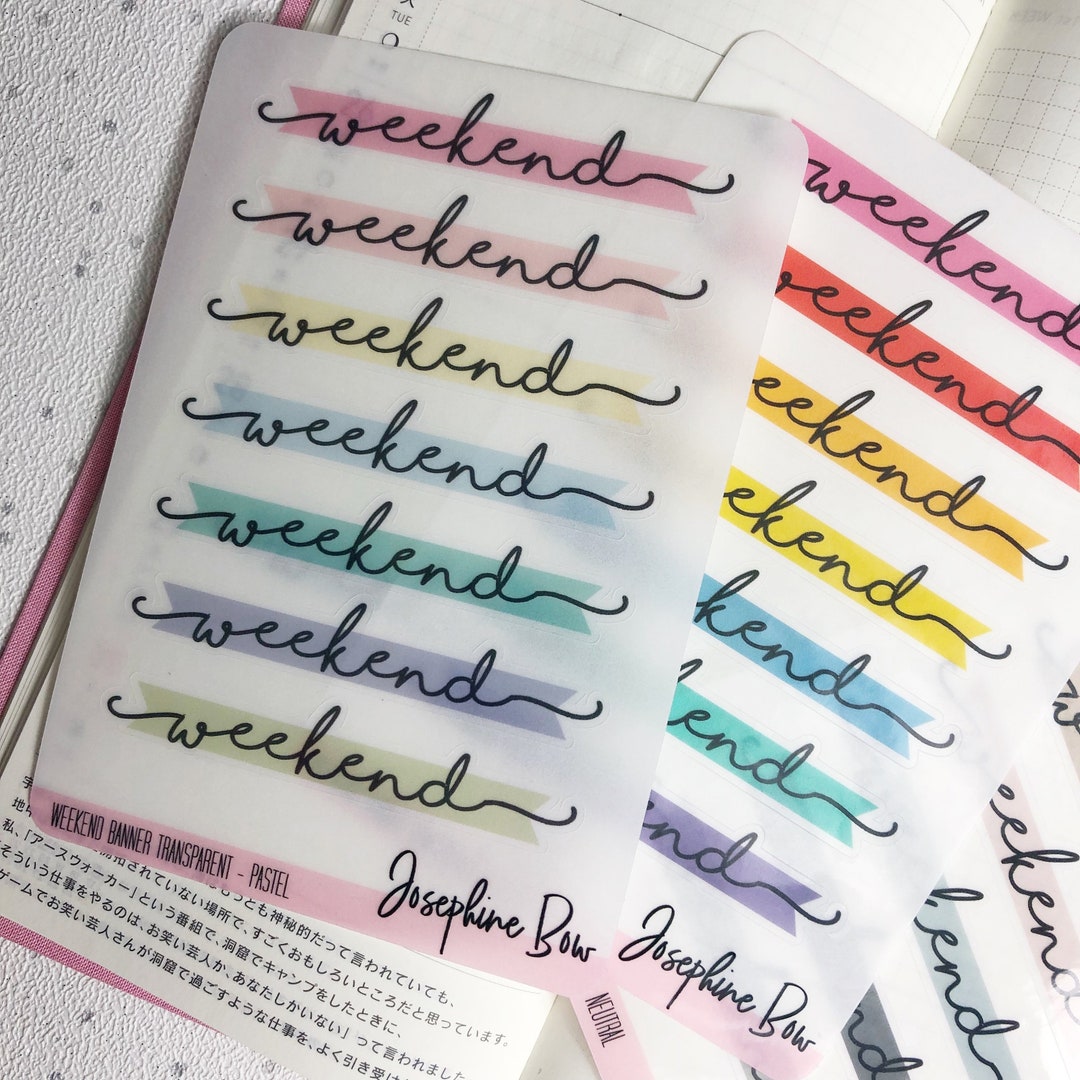 TUE
weekend
weekend
weekend
weekend
weekend
weekend
weekend
WEEKEND BANNER TRANSPARENT - PASTEL
Josephine Bow
weekend
weekend
weekend
weekend
kend
kend
end
Josephine Bow
NEUTRAL
weekend
kend
end
もっとも神秘的だって言われていても、
されていない場所で、すごくおもしろいところだと思っています。
私、「アースウォーカー」という番組で、洞窟でキャンプをしたときに、
そういう仕事をやるのは、お笑い芸人か、あなたしかいない」って言われました
ゲームでお笑い芸人さんが洞窟で過ごすような仕事を、よく引き受け